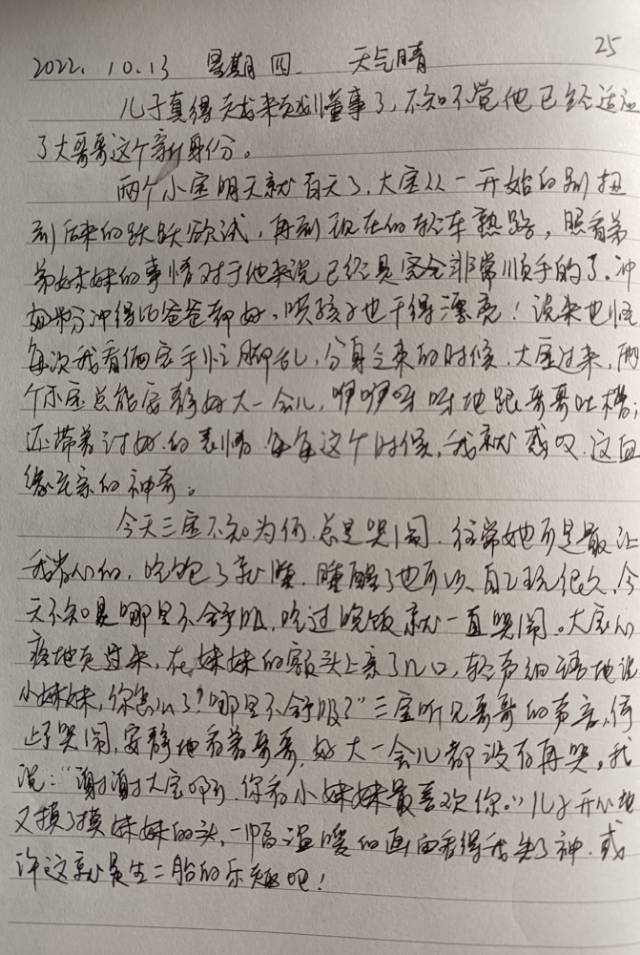 25
2022.10.13 星期四 天气晴
儿子真得是越来越懂事了，不知不觉他已经适应
了大哥哥这个新身份。
两个小宝明天就百天了，大宝从一开始的别扭
到后来的跃跃欲试，再到现在的轻车熟路，照看弟
弟妹妹的事情对于他来说已经是完全非常顺手的了。冲
奶粉冲得比爸爸都好，哄孩子也干得漂亮！说来也怪
每次我看俩宝手忙脚乱，分身乏术的时候，大宝过来，两
个小宝总能安静好大一会儿，咿咿呀呀地跟哥哥吐槽；
还带着讨好的表情，每每这个时候，我就感叹，这血
缘至亲的神奇。
今天三宝不知为何，总是哭闹，往常她可是最让
我省心的，吃饱了就睡，睡醒了也可以自己玩很久，今
天不知是哪里不舒服，吃过晚饭就一直哭闹。大宝心
疼地走过来，在妹妹的额头上亲了几口，轻声细语地说
小妹妹，你怎么了？哪里不舒服？”三宝听见哥哥的声音，停
止了哭闹，安静地看着哥哥，好大一会儿都没有再哭，我
说：“谢谢大宝啊，你看小妹妹最喜欢你。”儿子开心地
又摸了摸妹妹的头，一幅温暖的画面看得我失了神，或
许这就是生二胎的乐趣吧！